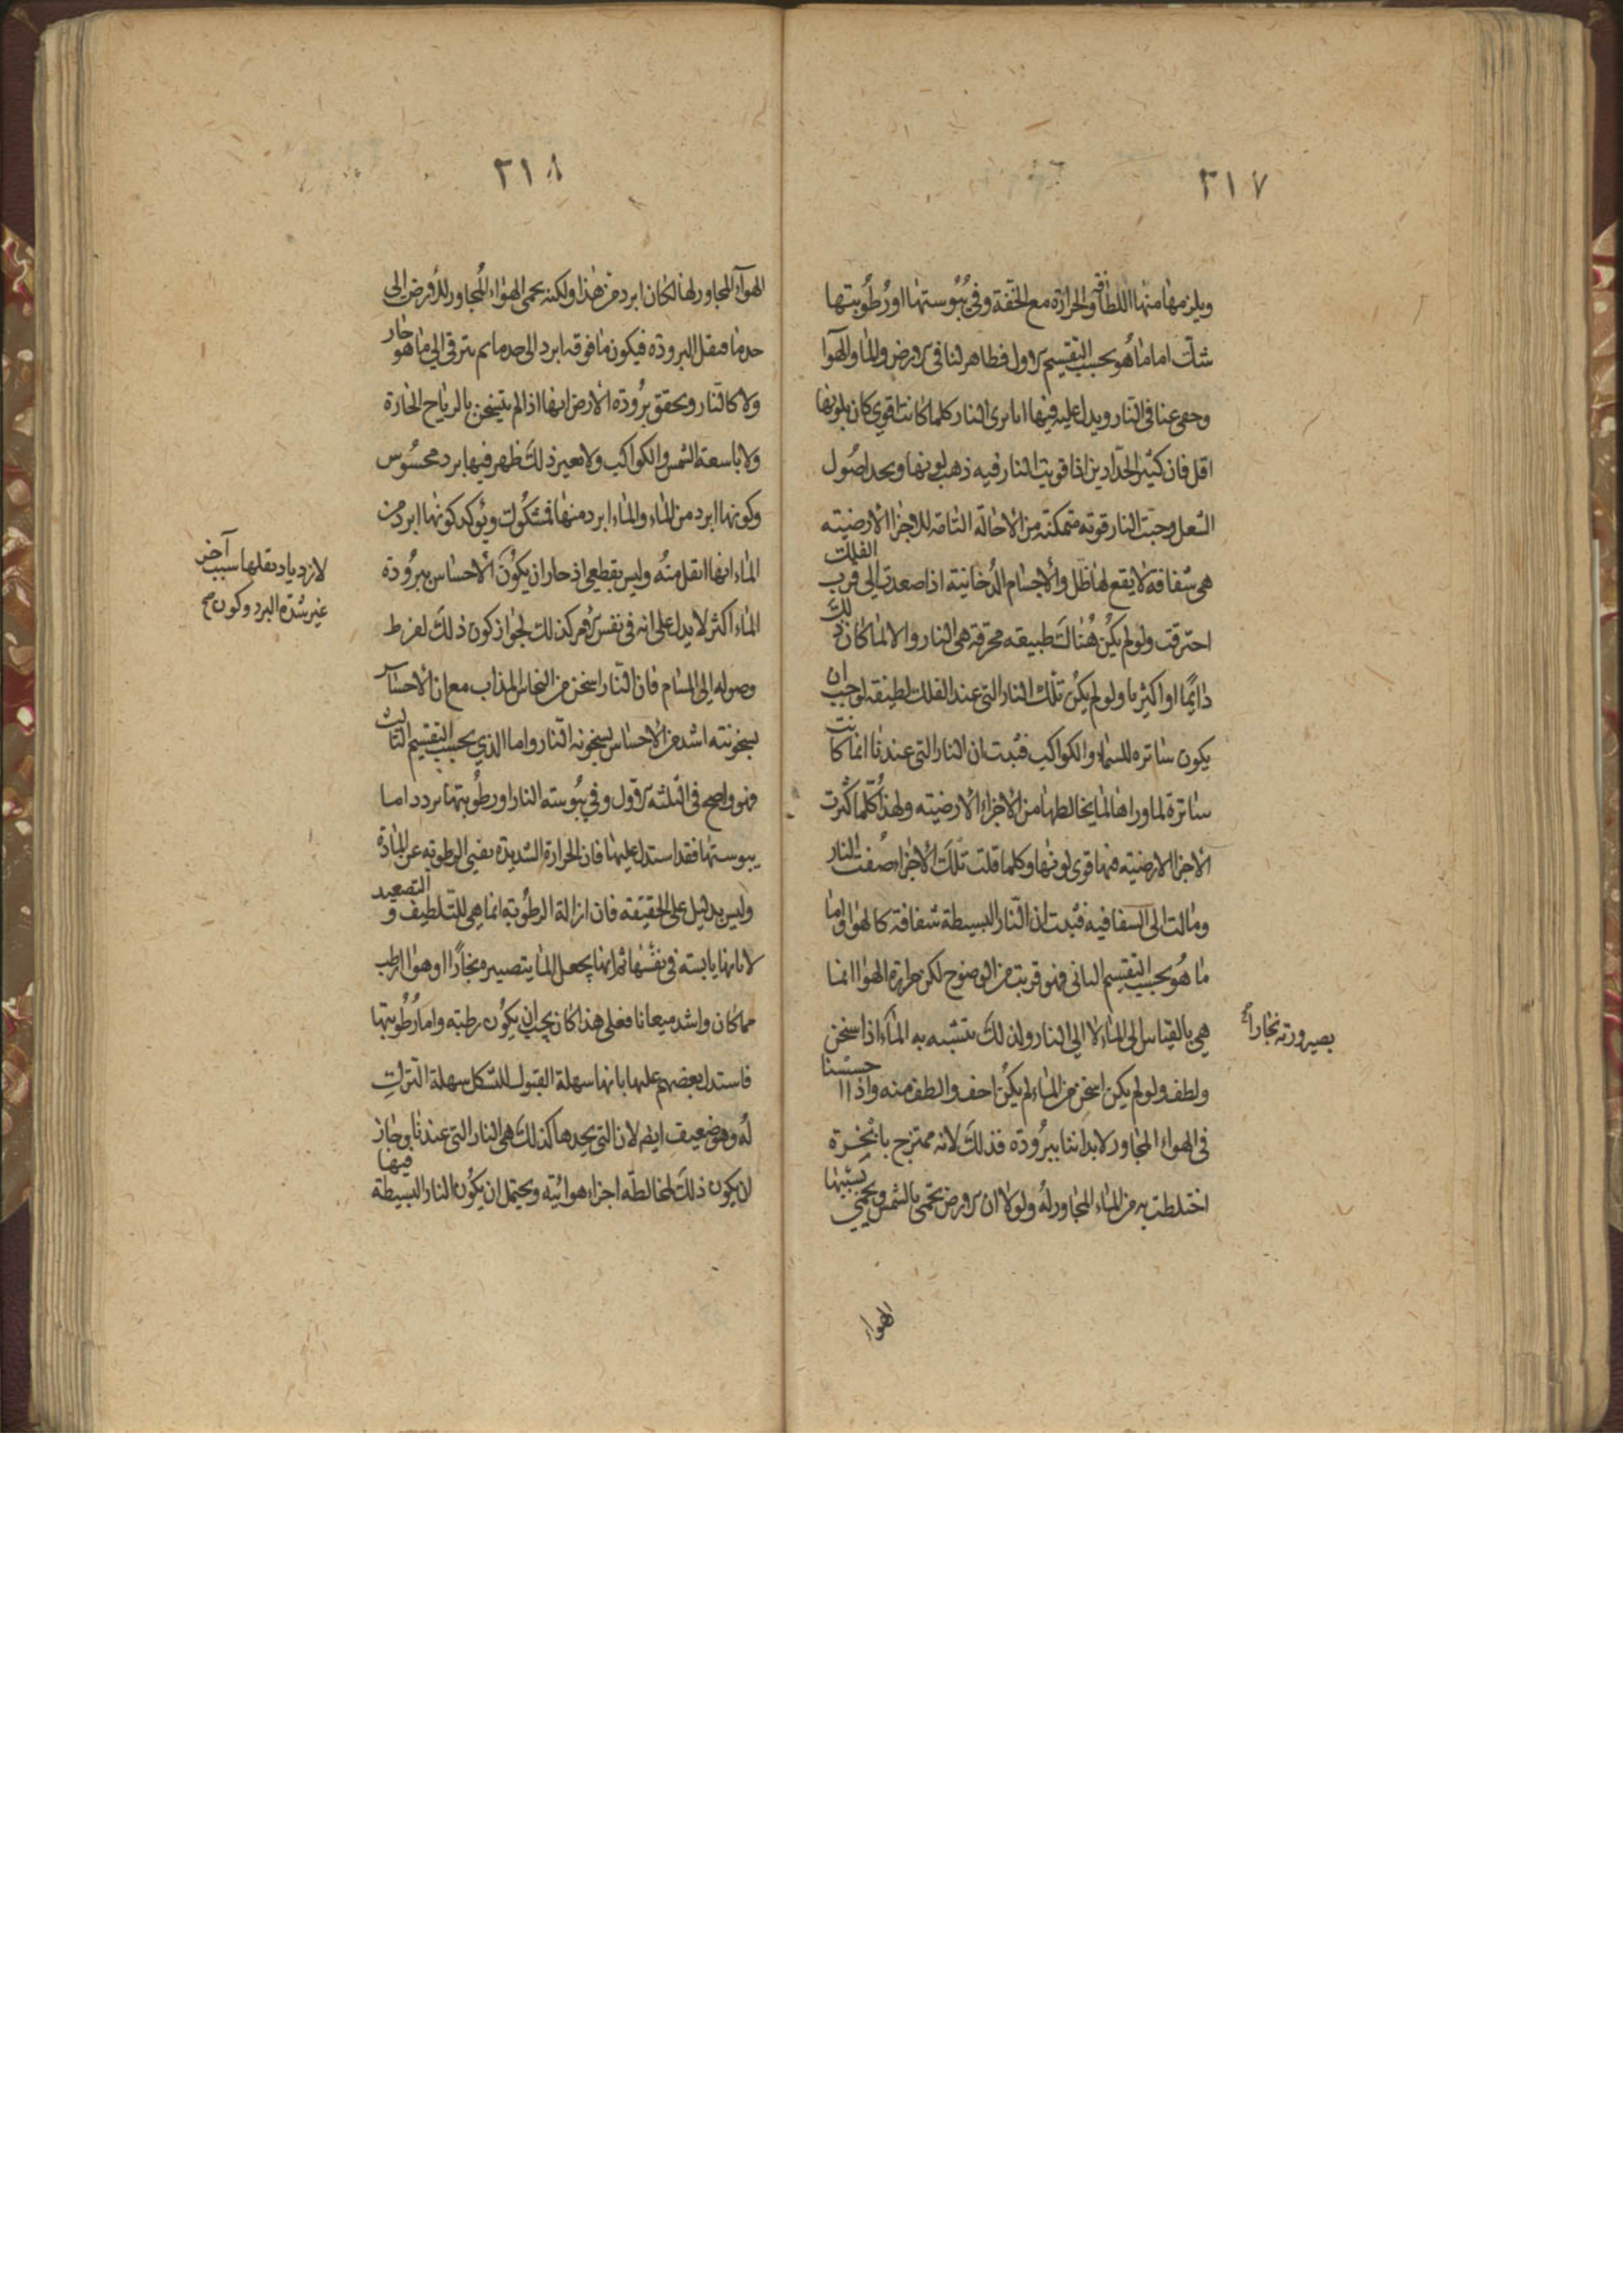 ٣١٧
ويلزمها منها اللطافة والحرارة مع الخفة وفي يبوستها او رطوبتها
شك اما ما هو بحسب التقسيم الاول فظاهر لنا في الارض والماء والهوا
وخفي عنا في النار ويدل عليه فيها انا نرى النار كلما كانت اقوى كان تلونها
اقل فان كير الحدادين اذا قويت النار فيه ذهب لونها ونجد اصول
الشعل وحيث النار قوية متمكنة من الاحالة التامة للاجزا الارضية
هي شفافة لا يقع لها ظل والاجسام الدخانية اذا صعدت الى قرب الفلك
احترقت ولو لم يكن هناك طبيعة محرقة هي النار والا لما كان ذلك
دايما او اكثريا ولو لم يكن تلك النار التي عند الفلك لطيفة لوجب ان
يكون ساترة للسماء والكواكب فثبت ان النار التي عندنا انما كانت
ساترة لما وراها لما يخالطها من الاجزاء الارضية ولهذا كلما كثرت
الاجزا الارضية فيها قوى لونها وكلما قلت تلك الاجزاء صفت النار
ومالت الى الشفافية فثبت ان النار البسيطة شفافة كالهوا واما
ما هو بحسب التقسيم الثاني فهو قريب من الوضوح لكن حرارة الهوا انما
هي بالقياس الى الماء لا الى النار ولذلك يتشبه به الماء اذا سخن
بصيرورته بخاراً
ولطف ولو لم يكن اسخن من الماء لم يكن اخف والطف منه واذا احسسنا
في الهواء المجاور لابداننا ببرودة فذلك لانه ممتزج بابخرة
اختلطت به من الماء المجاور له ولولا ان الارض تحمى بالشمس ويحمى بسببها
الهواء
٣١٨
الهوآء المجاور لها لكان ابرد من هذا ولكنه يحمى الهواء المجاور للارض الى
حد ما فيقل البرودة فيكون ما فوقه ابرد الى حد ما ثم يترقى الى ما هو حار
ولا كالنار ويحقق برودة الارض انها اذا لم يتسخن بالرياح الحارة
ولا باشعة الشمس والكواكب ولا بغير ذلك ظهر فيها برد محسوس
وكونها ابرد من الماء والماء ابرد منها فمشكوك ويؤكد كونها ابرد من
الماء انها اثقل منه وليس بقطعي اذ جاز ان يكون الاحساس ببرودة
لازدياد ثقلها سبب آخر
غير شدة البرد وكون صح
الماء اكثر لا يدل على انه في نفس الامر كذلك لجواز كون ذلك لفرط
وصوله الى المسام فان النار اسخن من النحاس المذاب مع ان الاحساس
بسخونته اشد من الاحساس بسخونة النار واما الذي بحسب التقسيم الثالث
فهو واضح في الثلثة الاول وفي يبوسة النار او رطوبتها تردد اما
يبوستها فقد استدل عليها فان الحرارة الشديدة يفني الرطوبة عن المادة
وليس بدليل على الحقيقة فان ازالة الرطوبة انما هي للتلطيف و التصعيد
لا لانها يابسة في نفسها ثم انها يجعل الما يتصييره بخاراً او هوا ارطب
مما كان واشد ميعانا فعلى هذا كان يجب ان يكون رطبة واما رطوبتها
فاستدل بعضهم عليها بانها سهلة القبول للتشكل سهلة الترك
له وهو ضعيف ايضا لان التي نجدها كذلك هي النار التي عندنا وجاز
ان يكون ذلك لمخالطة اجزاء هوائية فيها ويحتمل ان يكون النار البسيطة